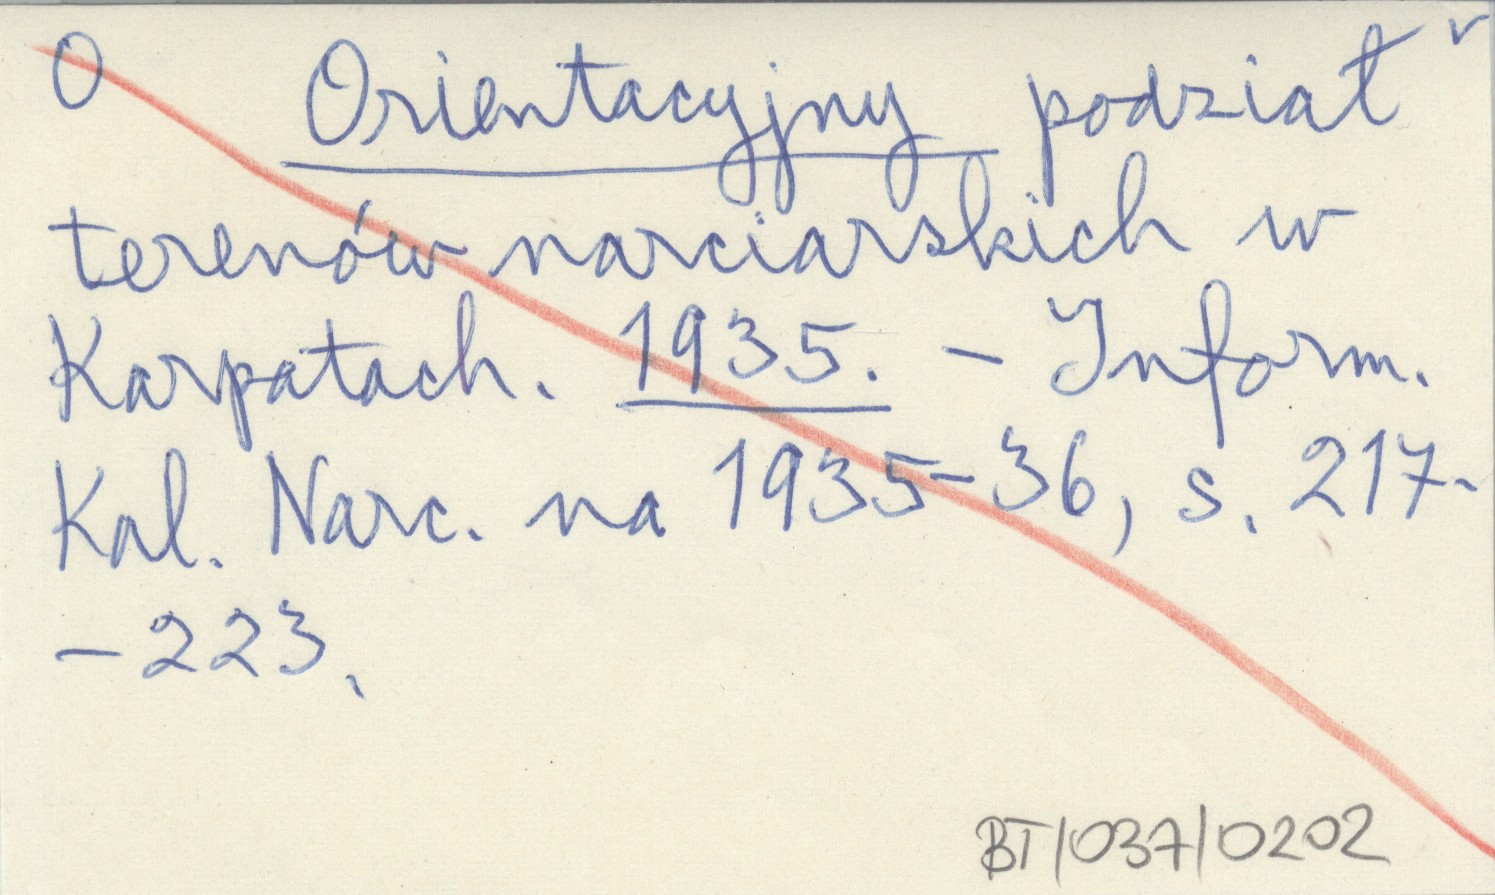 O Orientacyjny podział v
terenów narciarskich w
Karpatach. 1935. - Inform.
Kal. Narc. na 1935-36, s. 217-
-223.
BT/037/0202